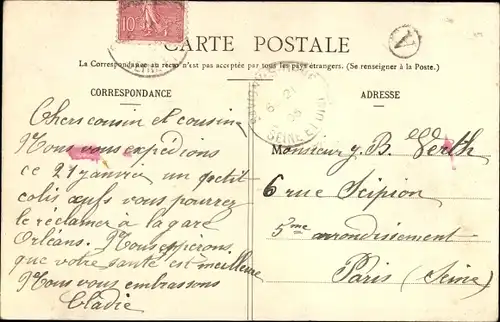 10
CARTE POSTALE
A
La Correspondance au recto n'est pas acceptée par tous les pays étrangers. (Se renseigner à la Poste.)
CORRESPONDANCE
Chers cousin et cousine
Nous vous expédions
ce 21 janvier un petit
colis œufs vous pourrez
le réclamer à la gare
Orléans. Nous espérons
que votre santé est meilleure
Nous vous embrassons
21
SEINE ET OISE
ADRESSE
Monsieur J. B. Verth
6 rue Scipion
5me arrondissement
Paris (Seine)